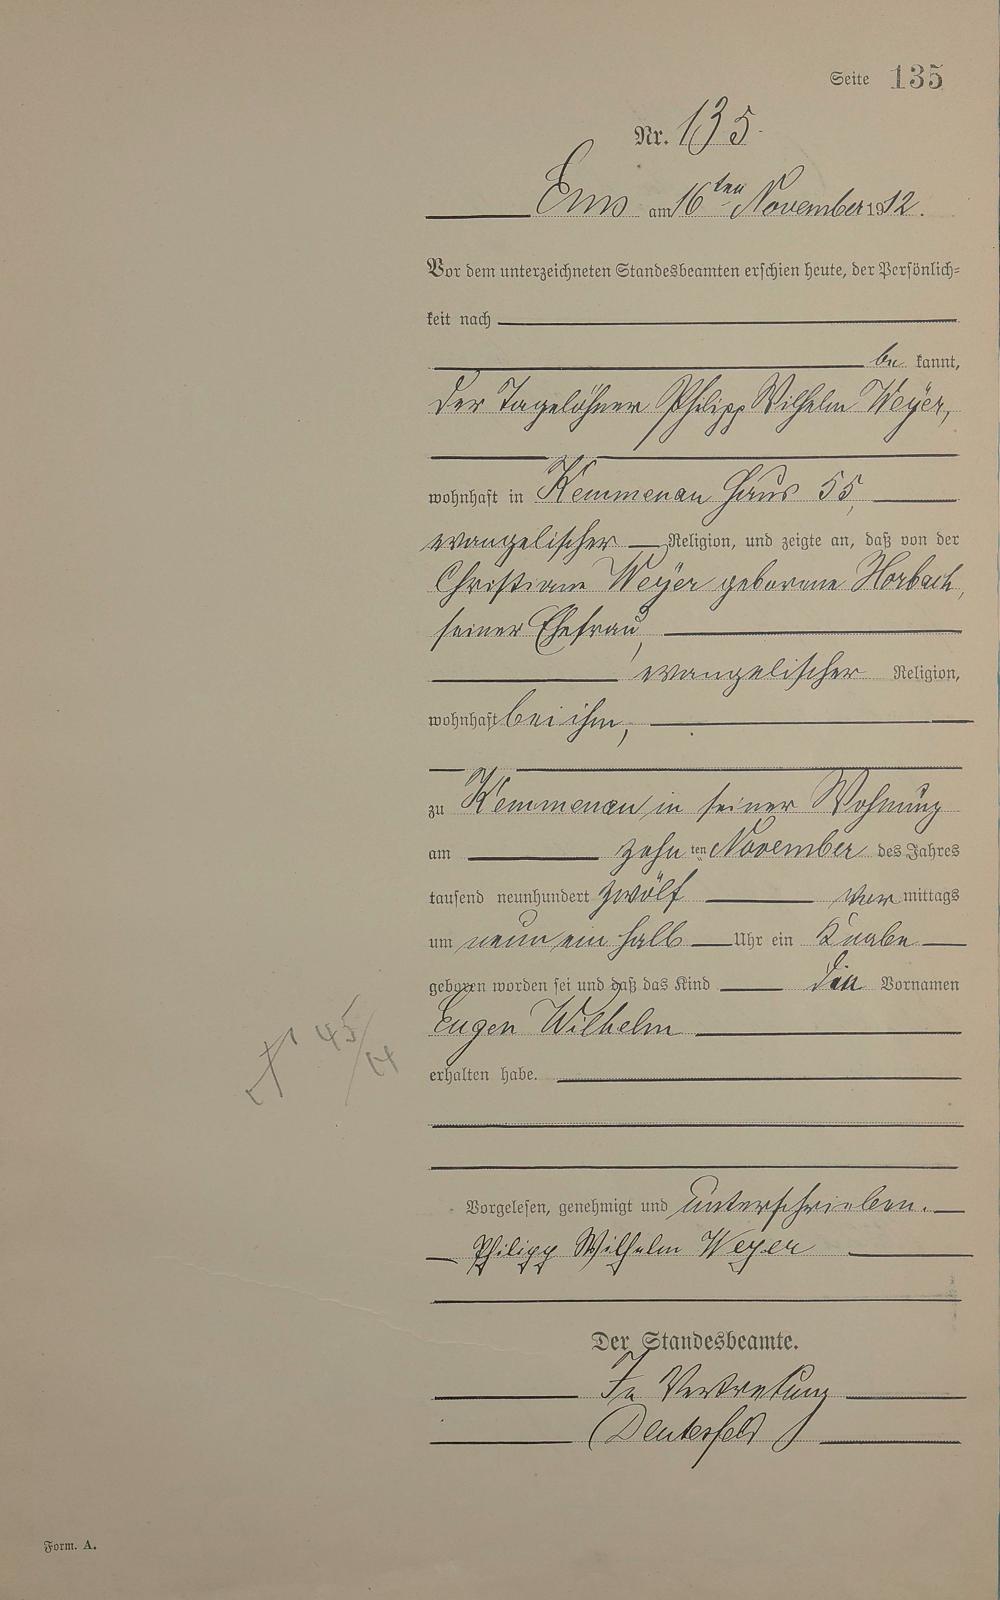 Seite 135
Nr. 135.
Ems am 16ten November 1912.
Vor dem unterzeichneten Standesbeamten erschien heute, der Persönlich=
keit nach
be kannt,
der Tagelöhner Philipp Wilhelm Weyer,
wohnhaft in Kemmenau Haus 55,
evangelischer Religion, und zeigte an, daß von der
Christiane Weyer geborene Horbach,
seiner Ehefrau,
evangelischer Religion,
wohnhaft bei ihm,
zu Kemmenau in seiner Wohnung
am zehn ten November des Jahres
tausend neunhundert zwölf vor mittags
um neun ein halb Uhr ein Knabe
geboren worden sei und daß das Kind die Vornamen
Eugen Wilhelm
† 45/14
erhalten habe.
Vorgelesen, genehmigt und unterschrieben.
Philipp Wilhelm Weyer
Der Standesbeamte.
In Vertretung
Form. A.